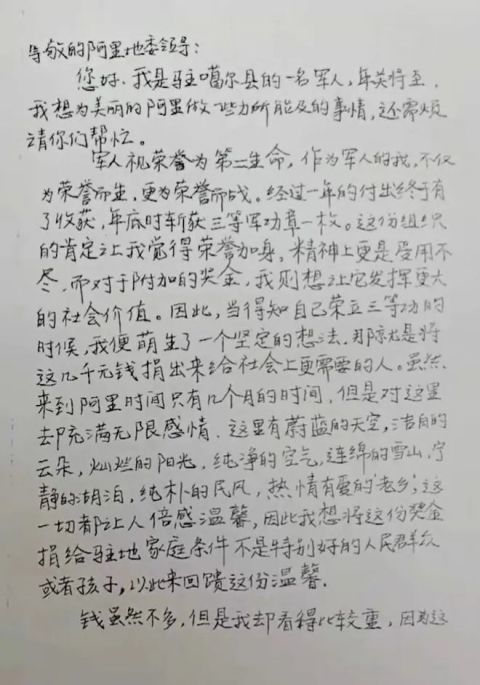 尊敬的阿里地委领导：
您好，我是驻噶尔县的一名军人，年关将至，
我想为美丽的阿里做一些力所能及的事情，还需烦
请你们帮忙。
军人视荣誉为第二生命，作为军人的我，不仅
为荣誉而生，更为荣誉而战。经过一年的付出终于有
了收获，年底时斩获三等军功章一枚。这份组织
的肯定让我觉得荣誉加身，精神上更是受用不
尽，而对于附加的奖金，我则想让它发挥更大
的社会价值。因此，当得知自己荣立三等功的
时候，我便萌生了一个坚定的想法，那就是将
这几千元钱捐出来给社会上更需要的人。虽然
来到阿里时间只有几个月的时间，但是对这里
却充满无限感情，这里有蔚蓝的天空，洁白的
云朵，灿烂的阳光，纯净的空气，连绵的雪山，宁
静的湖泊，纯朴的民风，热情有爱的老乡，这
一切都让人倍感温馨，因此我想将这份奖金
捐给驻地家庭条件不是特别好的人民群众
或者孩子，以此来回馈这份温馨。
钱虽然不多，但是我却看得比较重，因为这